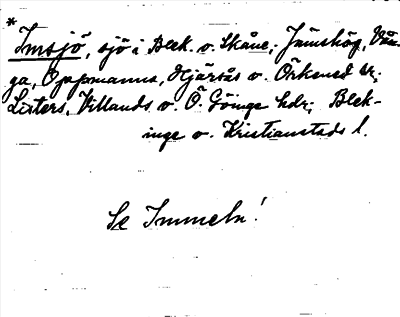 *
Imsjö, sjö i Blek. o. Skåne; Jämshög, Vån-
ga, Oppmanna, Hjärsås o. Örkened sr;
Listers, Villands o. Ö. Göinge hdr; Blek-
inge o. Kristianstads l.
Se Immeln!